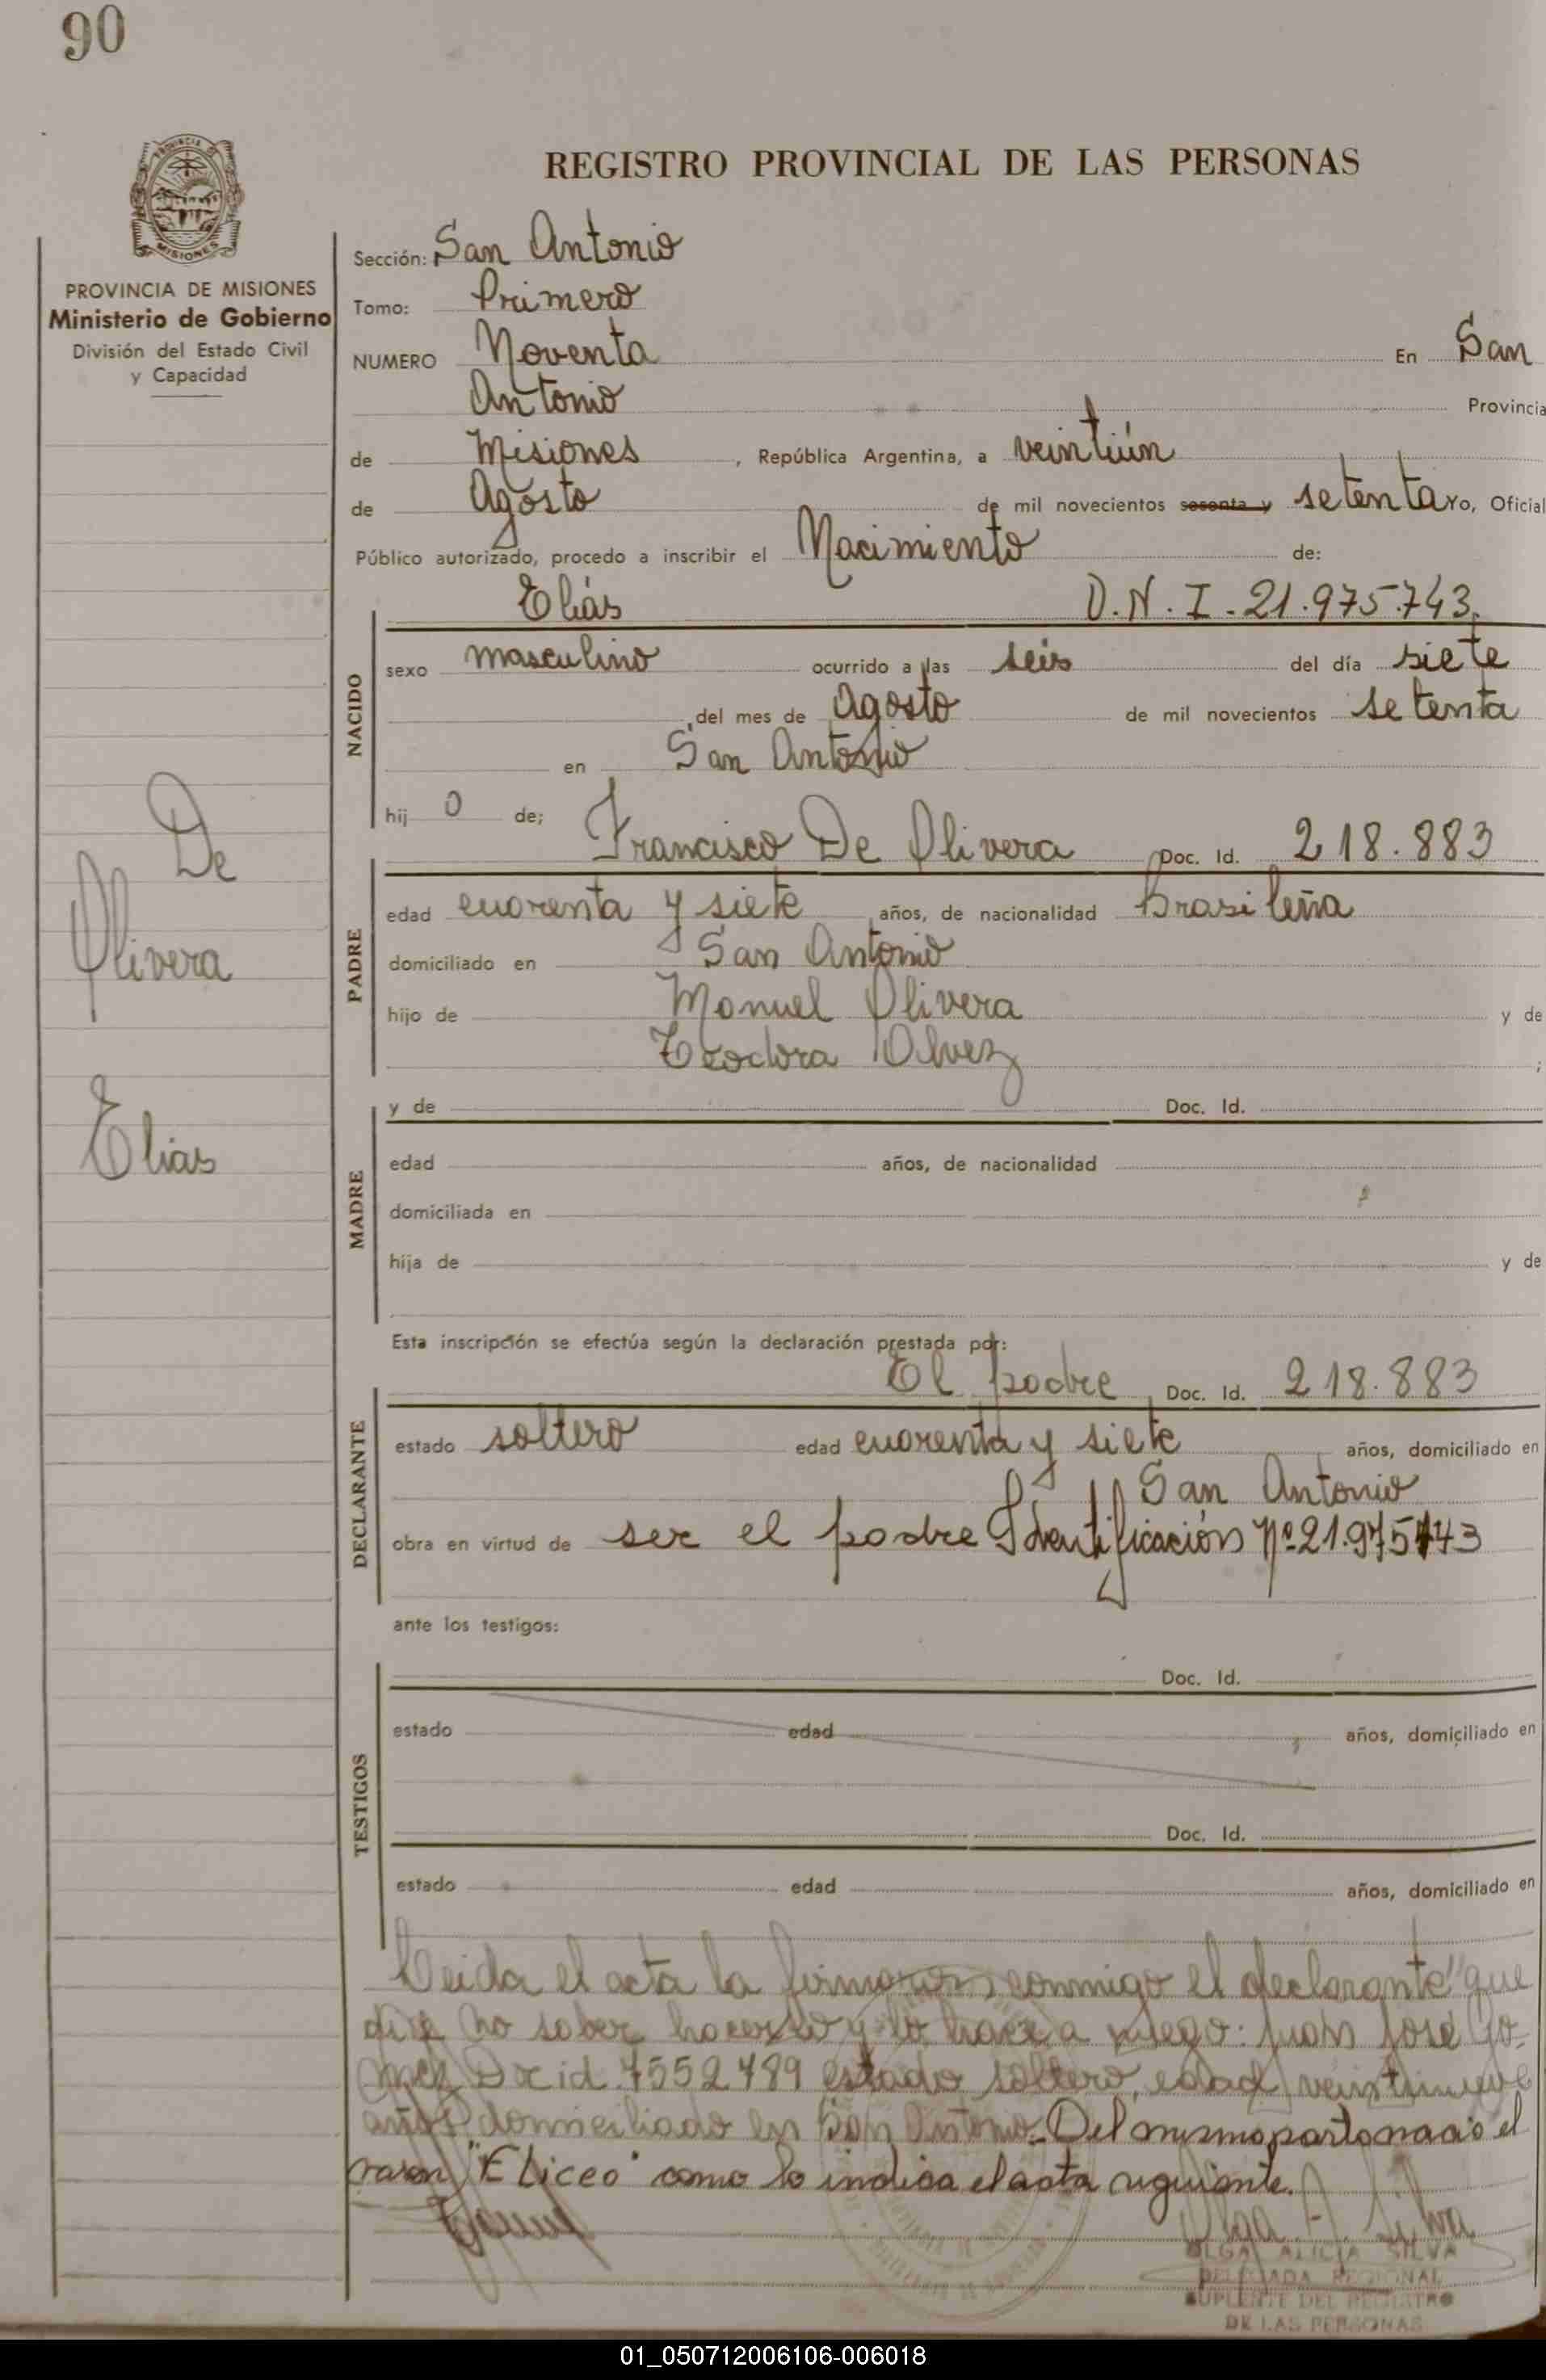 90
REGISTRO PROVINCIAL DE LAS PERSONAS
PROVINCIA DE MISIONES
Ministerio de Gobierno
División del Estado Civil
y Capacidad
Sección: San Antonio
Tomo: Primero
NUMERO Noventa En San
Antonio Provincia
de Misiones, República Argentina, a veintiún
de Agosto de mil novecientos sesenta y setenta yo, Oficial
Público autorizado, procedo a inscribir el Nacimiento de:
Elías D.N.I-21.975.743
NACIDO
sexo masculino ocurrido a las seis del día siete
del mes de Agosto de mil novecientos setenta
en San Antonio
hij o de;
De
Olivera
Elias
PADRE
Francisco De Olivera Doc. Id. 218.883
edad cuorenta y siete años, de nacionalidad Brasileña
domiciliado en San Antonio
hijo de Manuel Olivera y de
Teodora Olvez ;
MADRE
y de Doc. Id.
edad años, de nacionalidad
domiciliada en
hija de y de
Esta inscripción se efectúa según la declaración prestada por:
DECLARANTE
El padre, Doc. Id. 218.883
estado soltero edad cuorenta y siete años, domiciliado en
San Antonio
obra en virtud de ser el padre Identificación Nº 21.975743
ante los testigos:
TESTIGOS
Doc. Id.
estado edad años, domiciliado en
Doc. Id.
estado edad años, domiciliado en
Leida el acta la firmaron conmigo el declarante" que
dice no saber hacerlo y lo hace a ruego: Juan José Go-
mez Doc id 7552789 estado soltero, edad veintinueve
años domiciliado en San Antonio. Del mismo parto nació el
varon "Eliceo" como lo indica el acta siguiente.
Olga A. Silva
OLGA ALICIA SILVA
DELEGADA REGIONAL
SUPLENTE DEL REGISTRO
DE LAS PERSONAS
01_050712006106-006018